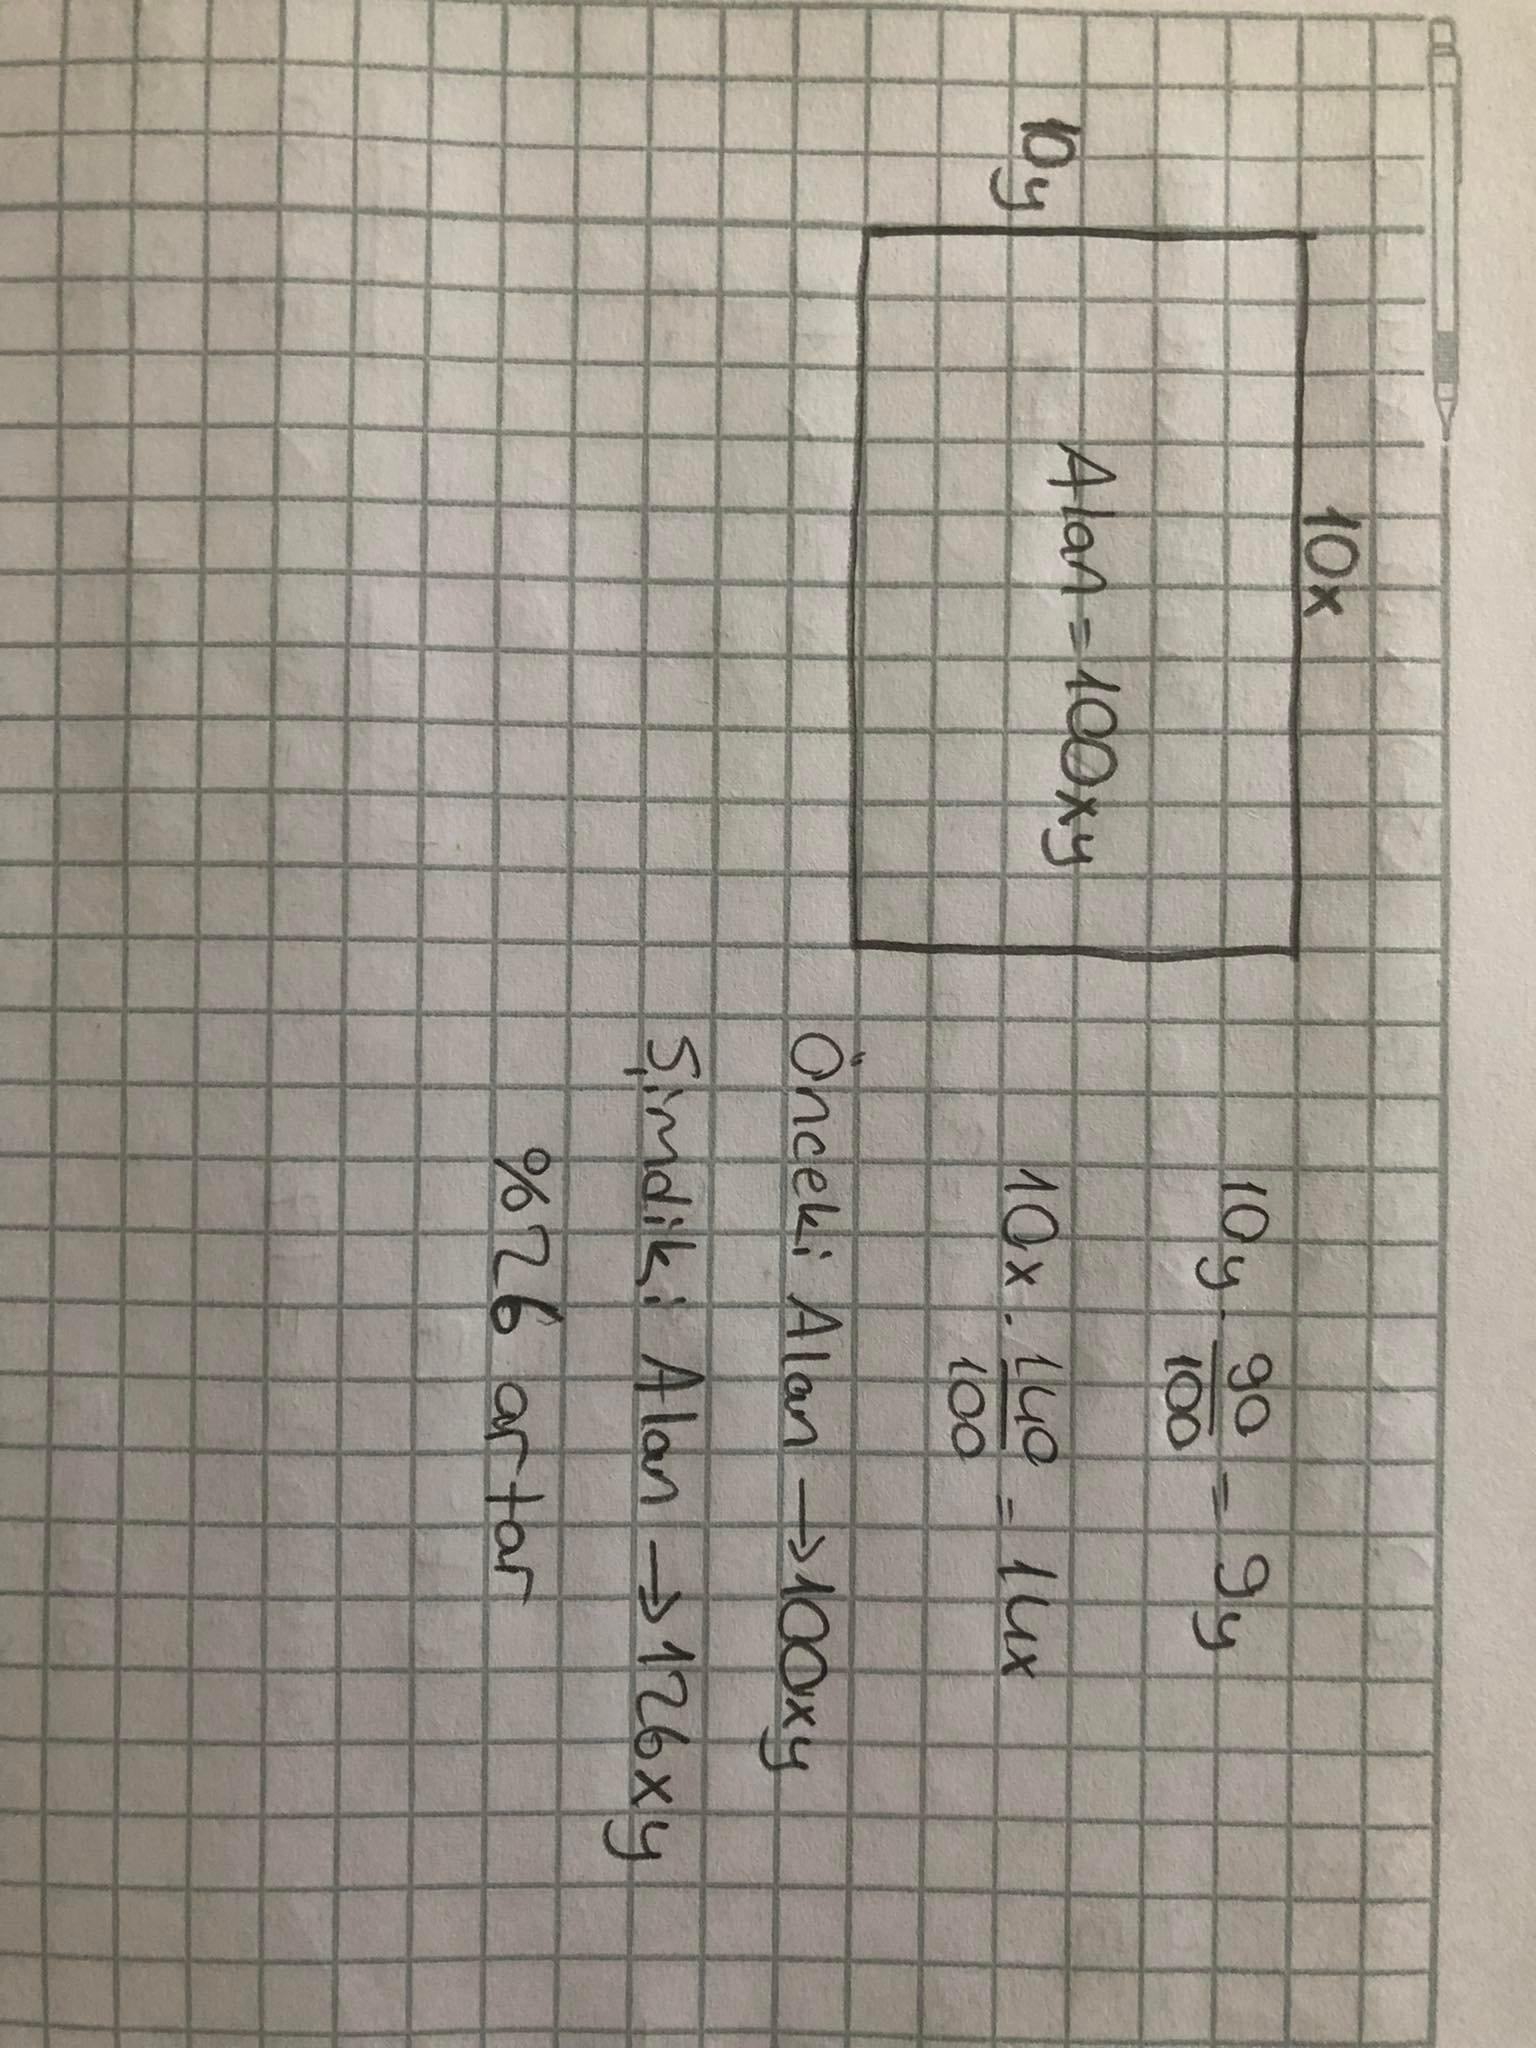 10x
10y
Alan=100xy
10y · 90/100 = 9y
10x · 140/100 = 14x
Önceki Alan → 100xy
Şimdiki Alan → 126xy
%26 artar